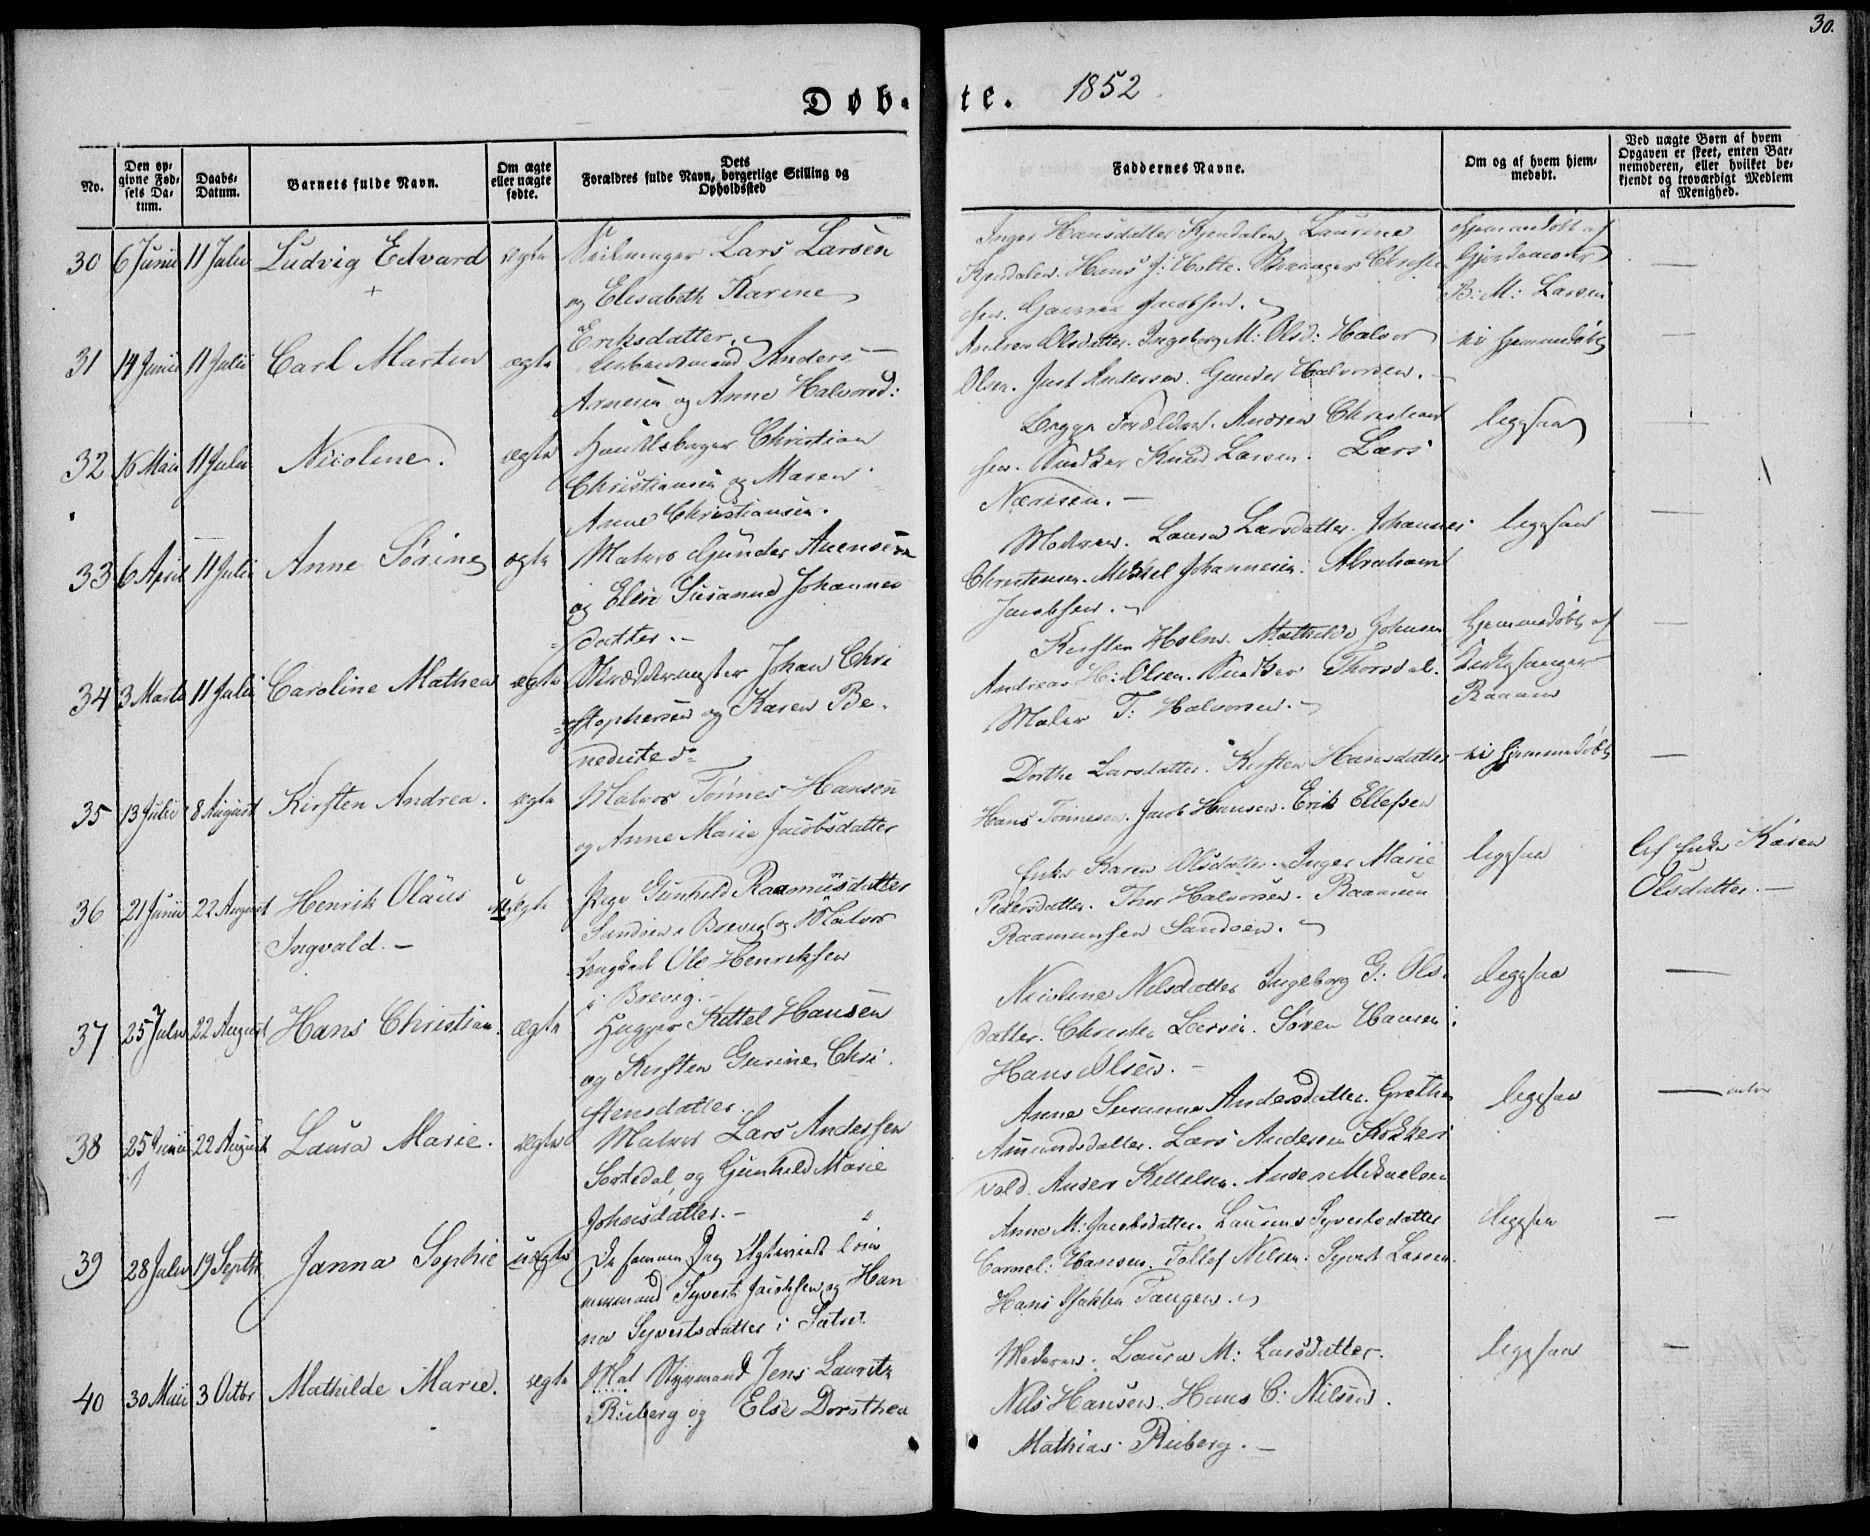 30.
Døb-te. 1852
No.
Den opgivne Fødsels Datum.
Daabs-Datum.
Barnets fulde Navn.
Om ægte eller uægte fødte.
Dets Forældres fulde Navn, borgerlige Stilling og Opholdssted
Faddernes Navne.
Om og af hvem hjemmedøbt.
Ved uægte Børn af hvem Opgaven er skeet, enten Barnemoderen, eller hvilket bekjendt og troværdigt Medlem af Menighed.
30 6 Junii 11 Julii Ludvig Edvard ægte Seilmager Lars Larsen
og Elisabeth Karine
Eriksdatter.
Inger Hansdatter Kjendalen, Laurine
Kjendalen. Hans J: Holte.
Jacobsen.
Hjemmedøbt af
Gjordemoder
B: M: Larsen
31 14 Junii 11 Julii Carl Martin ægte Arbeidsmand Anders
Arnesen og Anne Halvorsd:
Andrea Olsdatter. Ingeborg M: Olsd: Halvor
Olsen. Just Andersen. Gunder Halvorsen.
ei hjemmedøbt
32 16 Maii 11 Julii Nicoline. ægte Christian
Christiansen og Maren
Anne Christiansen.
Begge Forældre. Andrea Christian
sen. Snedker Knud Larsen. Lars
Næriesen.
ligesaa
33 6 April 11 Julii Anne Sørine ægte Matros Gunder Auensen
og Elise Susanne Johannes
datter.
Moderen. Laura Larsdatter. Johannes
Christensen. Mikkel Johannesen. Abraham
Jacobsen.
ligesaa
34 3 Marts 11 Julii Caroline Mathea ægte Skræddermester Johan Chri
stophersen og Karen Be-
nedicted:
Kirsten Holm. Mathilde Johnsen
Andreas H: Olsen. Snedker Thorsdal.
Maler T: Halvorsen.
Hjemmedøbt af
Kirkesanger
Raamun
35 13 Julii 8 August Kirsten Andrea. ægte Matros Tønnes Hansen
og Anne Marie Jacobsdatter
Dorthe Larsdatter. Kirsten Hansdatter
Hans Tønnesen. Jacob Hansen. Erik Ellefsen
ei hjemmedøbt
36 21 Junii 22 August Henrik Olaus
Ingvald. uægte Pige Gunhild Raamundsdatter
Sandøen i Brevig og Matros
Ungkarl Ole Henriksen
i Brevig.
Enke Karen Olsdatter. Inger Marie
Pedersdatter. Thor Halvorsen. Raamun
Raamunsen Sandøen.
ligesaa
Af Enke Karen
Olsdatter.
37 25 Julii 22 August Hans Christian. ægte Hugger Kittel Hansen
og Kirsten Gurine Chri-
stensdatter.
Nicoline Nilsdatter Ingeborg G: Ols-
datter. Christen Larsen. Søren Hansen
Hans Olsen.
ligesaa
38 25 Junii 22 August Laura Marie. ægte Matros Lars Andersen
Sortedal, og Gunhild Marie
Johnsdatter.
Anne Susanne Andersdatter. Grethe
Amundsdatter. Lars Andersen Kokkers
vold. Anders Kittelsen. Anders Mikaelsen
ligesaa
39 28 Julii 19 Septbr Janna Sophie uægte
Syvert Jacobsen og Han
na Syvertsdatter i
Anne M: Jacobsdatter. Laurens Syvertsdatter
Hansen. Tollef Nilsen. Syvert Larsen.
Hans Tangen.
ligesaa
40 30 Maii 3 Octbr Mathilde Marie. ægte Mat Styrmand Jens Lauritz
Ruberg og Else Dorothea
Moderen. Laura M: Larsdatter.
Nils Hansen. Hans C: Nilsen.
Mathias Ruberg.
ligesaa